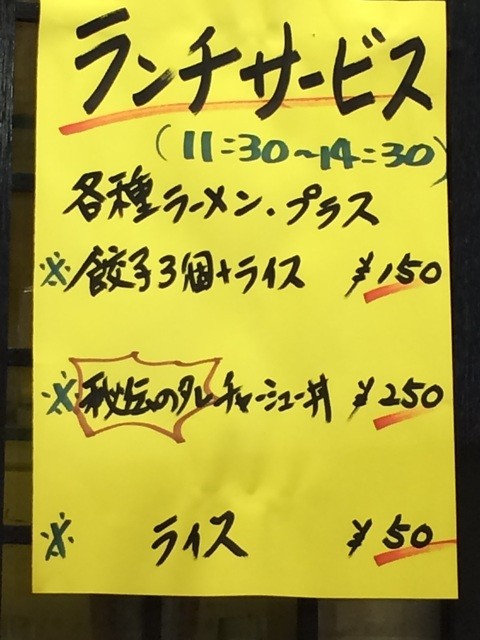 ランチサービス
(11:30～14:30)
各種ラーメン.プラス
※餃子3個+ライス ¥150
※秘伝のタレチャーシュー丼 ¥250
※ ライス ¥50